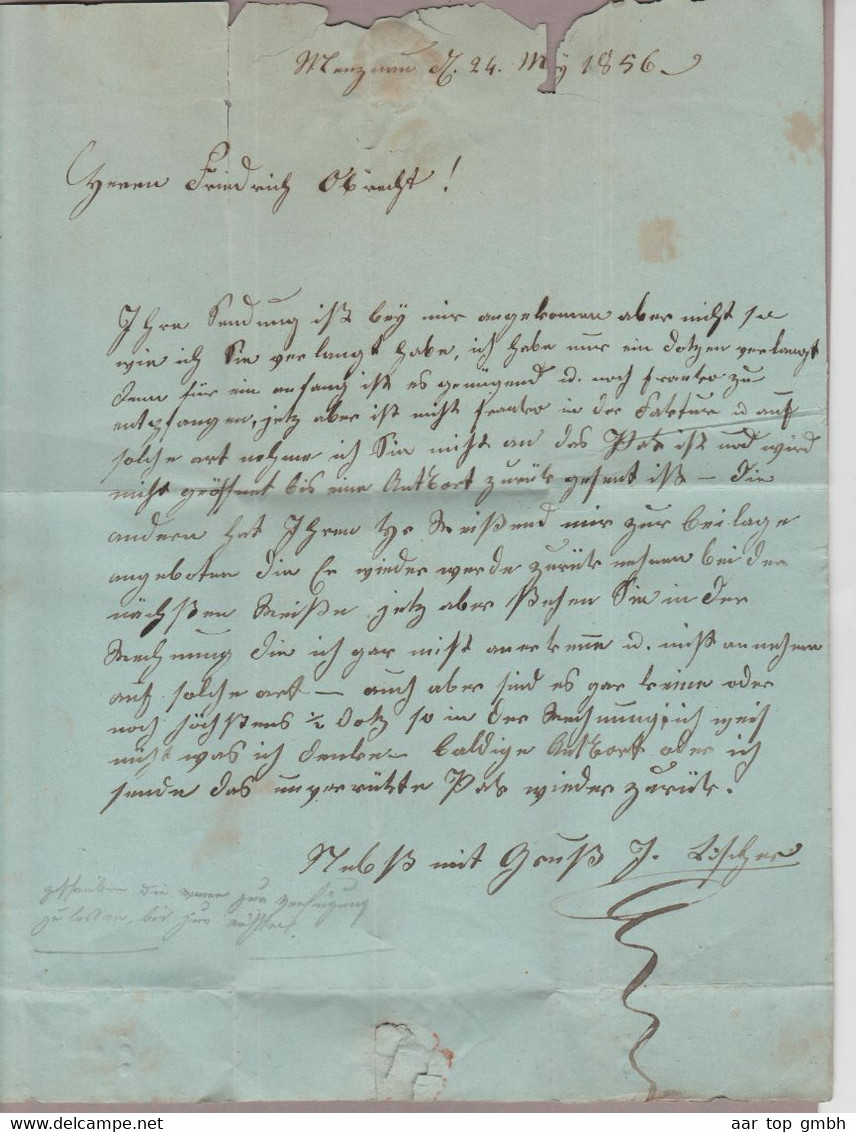 Menznau d. 24. Mÿ 1856.
Herrn Friedrich Obrecht!
Ihre Sendung ist bey mir angekomen aber nicht so
wie ich Sie verlangt habe, ich habe nur ein Dotzen verlangt
denn für ein anfang ist es genügend u. noch franko zu
entpfangen, jetz aber ist nicht franko in der Faktur u auf
solche art nehme ich Sie nicht an das Pak ist und wird
nicht geöffnet bis eine Antwort zurük gesent ist – die
andern hat Ihren Hr Reißend mir zur beilage
angeboten die Er wieder werde zurük nehmen bei der
nächsten Reiße jetz aber stehen Sie in der
Rechnung die ich gar nicht anerkene u. nicht annehme
auf solche art – auch aber sind es gar keine oder
noch höchstens ½ Dotz so in der Rechnung, ich weis
nicht was ich denke – baldige Antwort oder ich
sende das unverrükte Pak wieder zurük.
Nebst mit Gruß J.
die waare zur verfügung
zu lassen, bis zur
aar top gmbh